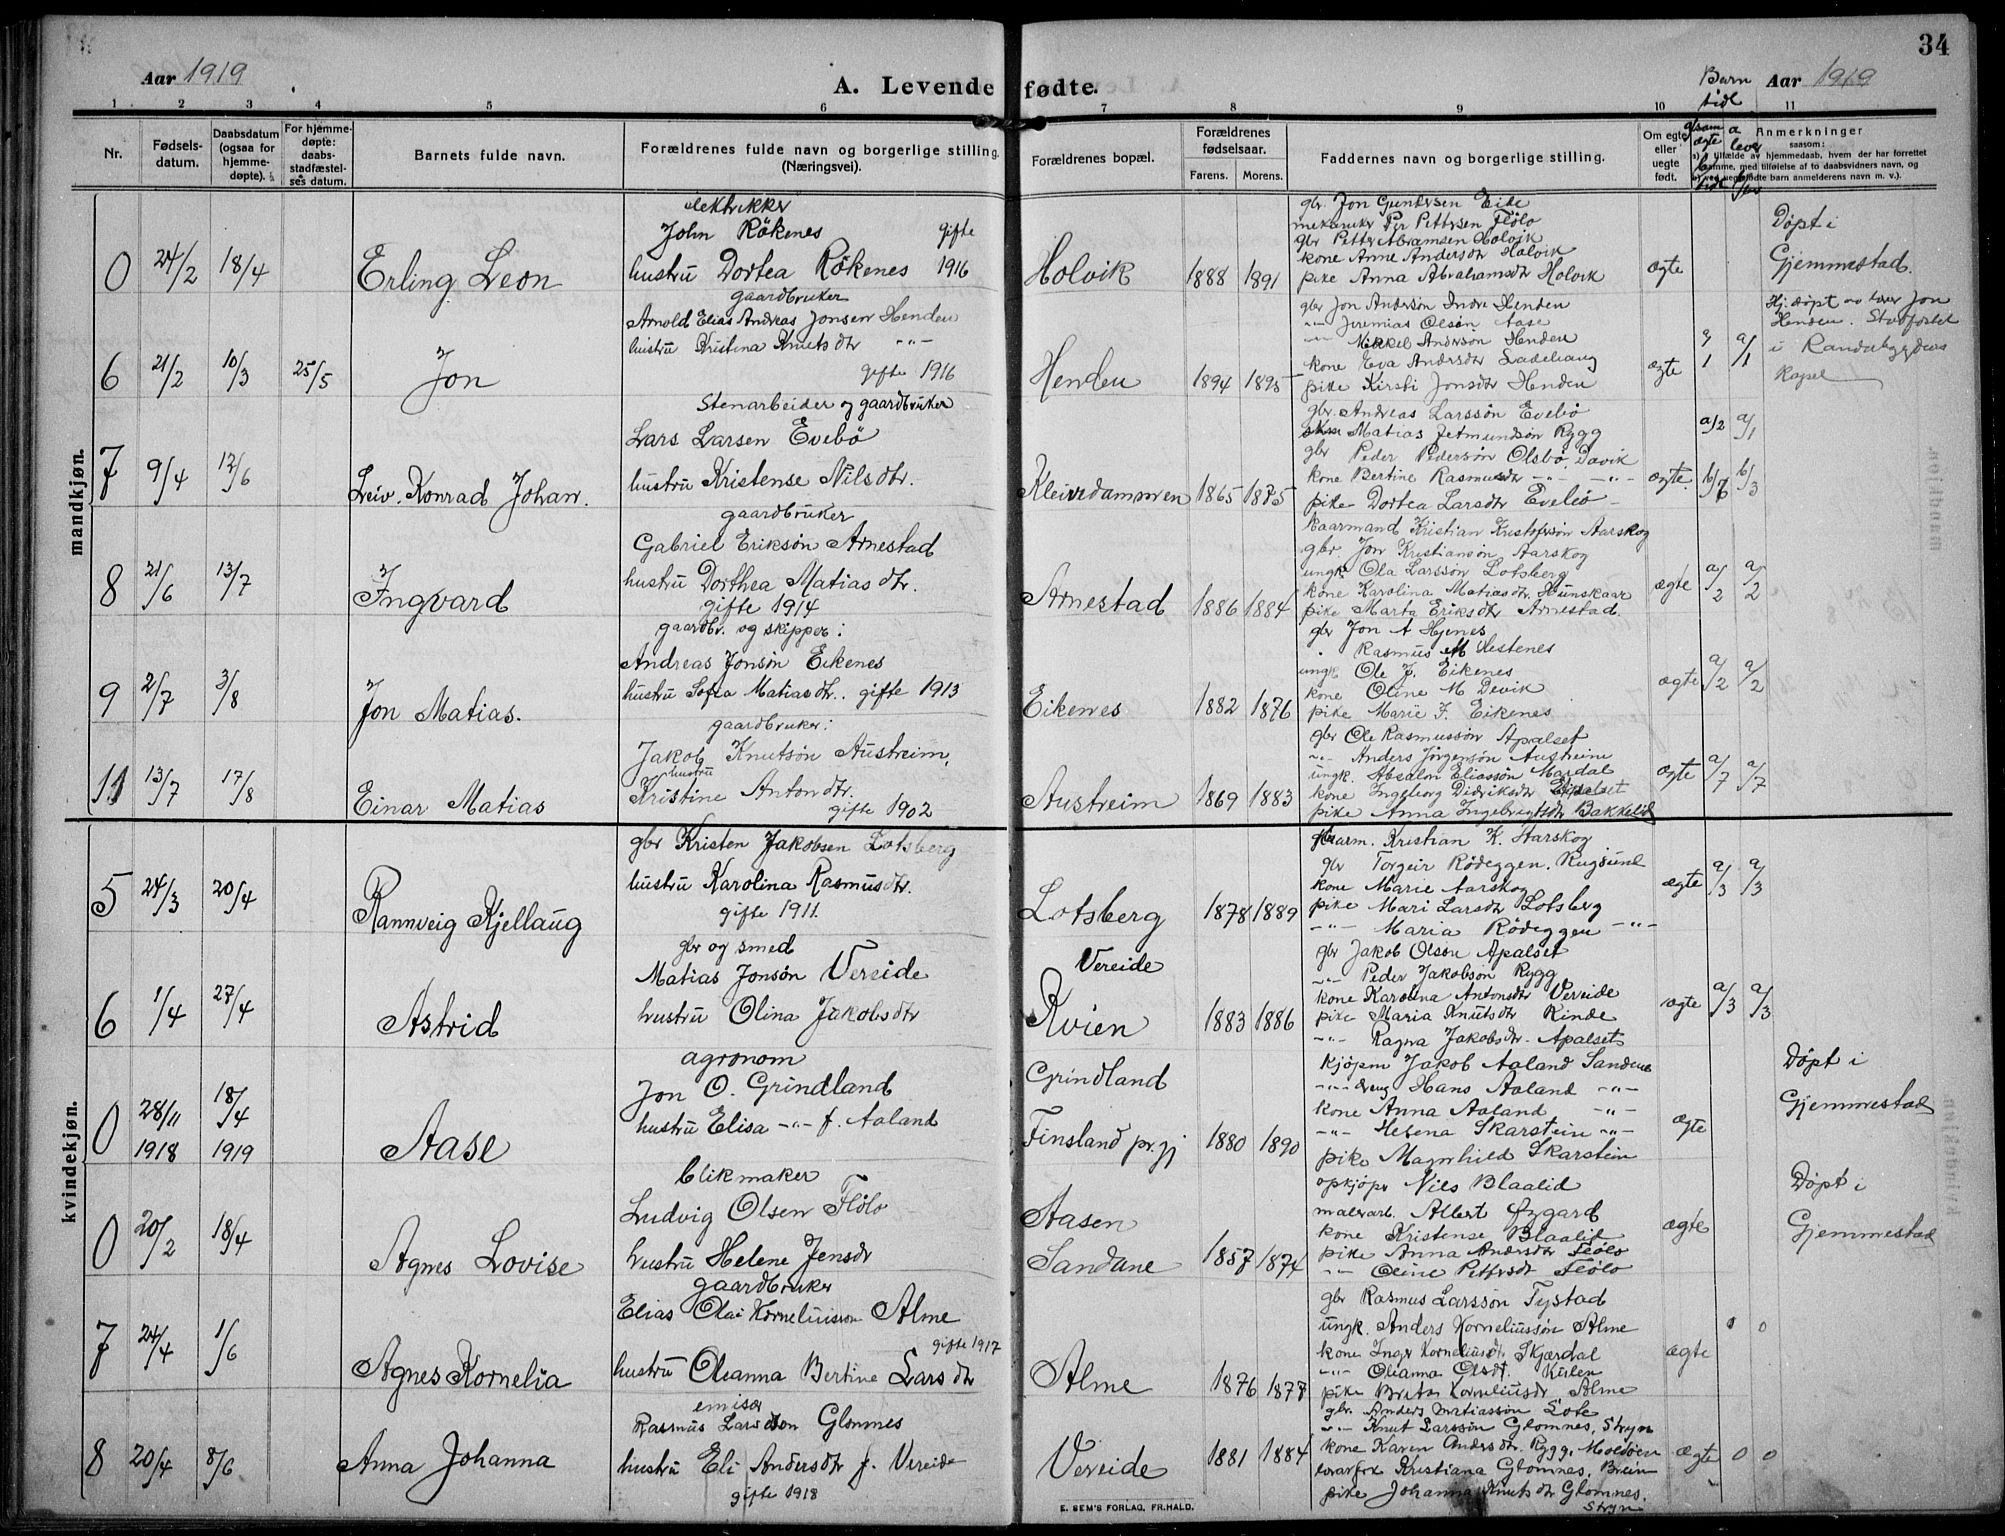 34
Aar 1919
A. Levende fødte.
Barn tidl
Aar 1919
1 2 3 4 5 6 7 8 9 10 11
Nr.
Fødsels-
datum.
Daabsdatum
(ogsaa for
hjemme-
døpte).
For hjemme-
døpte:
daabs-
stadfæstel-
ses datum.
Barnets fulde navn.
Forældrenes fulde navn og borgerlige stilling.
(Næringsvei).
Forældrenes bopæl.
Forældrenes
fødselsaar.
Farens. Morens.
Faddernes navn og borgerlige stilling.
Om egte
eller
uegte
født.
Anmerkninger
saasom:
mandkjøn.
0 24/2 18/4 Erling Leon
elektrikker
John Røkenes gifte
hustru Dortea Røkenes 1916
Holvik 1888 1891
gbr. Jon Gundersen Eide
Per Pettersen Flølo
gbr Petter Abramsen Holvik
kone Anne Andersdtr Holvik
pike Anna Abrahamsdtr Holvik
ægte
Døpt i
Gjemmestad.
6 21/2 10/3 25/5 Jon
gaardbruker
Arnold Elias Andreas Jonsen Henden
hustru Kristina Knutsdtr -"-
gifte 1916
Henden 1894 1895
gbr Jon Andersøn Indre Henden
-"- Jeremias Olsøn Aase
-"- Mikkel Andersøn Henden
kone Eva Andersdtr Ladehaug
pike Kirsti Jonsdtr Henden
ægte
a/1
Hj. døpt av lærer Jon
Henden. Stadfæstet
i Randabygdens
Kapel
7 9/4 12/6 Leiv. Konrad Johan.
Stenarbeider og gaardbruker
Lars Larsen Evebø
hustru Kristense Nilsdtr.
Kleivedammen 1865 1875
gbr. Andreas Larssøn Evebø
Matias Jetmundsøn Rygg
gbr Peder Pedersøn Olsbø, Davik
kone Bertine Rasmusdtr -"- -"-
pike Dortea Larsdtr Evebø
ægte.
a/2 a/1
b/6 b/3
8 21/6 13/7 Ingvard
gaardbruker
Gabriel Eriksøn Arnestad
hustru Dorthea Matiasdtr.
gifte 1914
Arnestad 1886 1884
kaarmand Kristian Kristofersøn Aarskog
gbr. Jon Kristiansøn Aarskog
ungk Ola Larssøn Lotsberg
kone Karolina Matiasdtr Hunskaar
pike Marta Eriksdtr Arnestad.
ægte a/2 a/2
9 2/7 3/8 Jon Matias.
gaardbr. og skipper:
Andreas Jonsøn Eikenes
hustru Sofia Matiasdtr. gifte 1913
Eikenes 1882 1876
gbr Jon A Hjenes
" Rasmus M Hestenes
ungk Ole J. Eikenes
kone Oline M Devik
pike Marie J. Eikenes
ægte a/2 a/2
11 13/7 17/8 Einar Matias
gaardbruker:
Jakob Knutsøn Austreim,
hustru
Kristine Antondtr.
gifte 1902
Austreim 1869 1883
gbr Ole Rasmussøn Apalset
-"- Anders Jørgensøn Austreim
ungk. Absalon Eliassøn Mardal
kone Ingeborg Didriksdtr Apalset
pike Anna Ingebrigtsdtr Bakkelid
ægte a/7 a/7
kvindekjøn.
5 24/3 20/4 Rannveig Kjellaug
gbr Kristen Jakobsen Lotsberg
hustru Karolina Rasmusdtr.
gifte 1911.
Lotsberg 1878 1889
kaarm. Kristian K. Aarskog
gbr Torgeir Rødeggen. Rugsund
kone Marie Aarskog
pike Mari Larsdtr Lotsberg
-"- Maria Rødeggen -"-
ægte a/3 a/3
6 1/4 27/4 Astrid
gbr og smed
Matias Jonsøn Vereide
hustru Olina Jakobsdtr
Vereide
Kvien 1883 1886
gbr Jakob Olson Apalset
-"- Peder Jakobsøn Rygg
kone Karolina Antonsdtr Vereide
pike Maria Knutsdtr Rinde
-"- Ragna Jakobsdtr. Apalset
ægte a/3 a/3
0 28/11 1918 18/4 1919 Aase
agronom
Jon O. Grindland
hustru Elisa -"- f. Aaland
Grindland
Finsland pr. gj 1880 1890
kjøpm Jakob Aaland Sandene
-"- dreng Hans Aaland -"-
kone Anna Aaland -"-
-"- Helena Skarstein -"-
pike Magnhild Skarstein
ægte
Døpt i
Gjemmestad
0 20/2 18/4 Agnes Lovise
blikmaker
Ludvig Olsen Flølo
hustru Helene Jensdr
Aasen
Sandane 1857 1874
opkjøper Nils Blaalid
malerarb. Albert Øygard
kone Kristense Blaalid
pike Anna Andersdtr Flølo
-"- Oline Pettersdr Flølo
ægte
Døpt i
Gjemmestad
7 24/4 1/6 Agnes Kornelia
gaardbruker
Elias Olai Korneliusson Alme
gifte 1917
hustru Oleanna Bertine Larsdtr
Alme 1876 1877
gbr Rasmus Larssøn Tystad
ungk. Anders Korneliussøn Alme
kone Inger Korneliusdtr Skjærdal
-"- Olianna Olsdt. Kirlen
pike Brita Korneliusdr Alme
ægte 0 0
8 20/4 8/6 Anna Johanna
emisær
Rasmus Larsson Glomnes
hustru Eli Andersdtr f. Vereide
gifte 1918
Vereide 1881 1884
gbr. Anders Matiassøn Lote
-"- Knut Larssøn Glomnes, Stryn
kone Karen Andersdtr. Rygg, Moldøen
Kristiana Glomnes, Breim
pike Johanna Knutsdtr Glomnes,
Stryn
ægte 0 0
E. SEM'S FORLAG, FR.HALD.